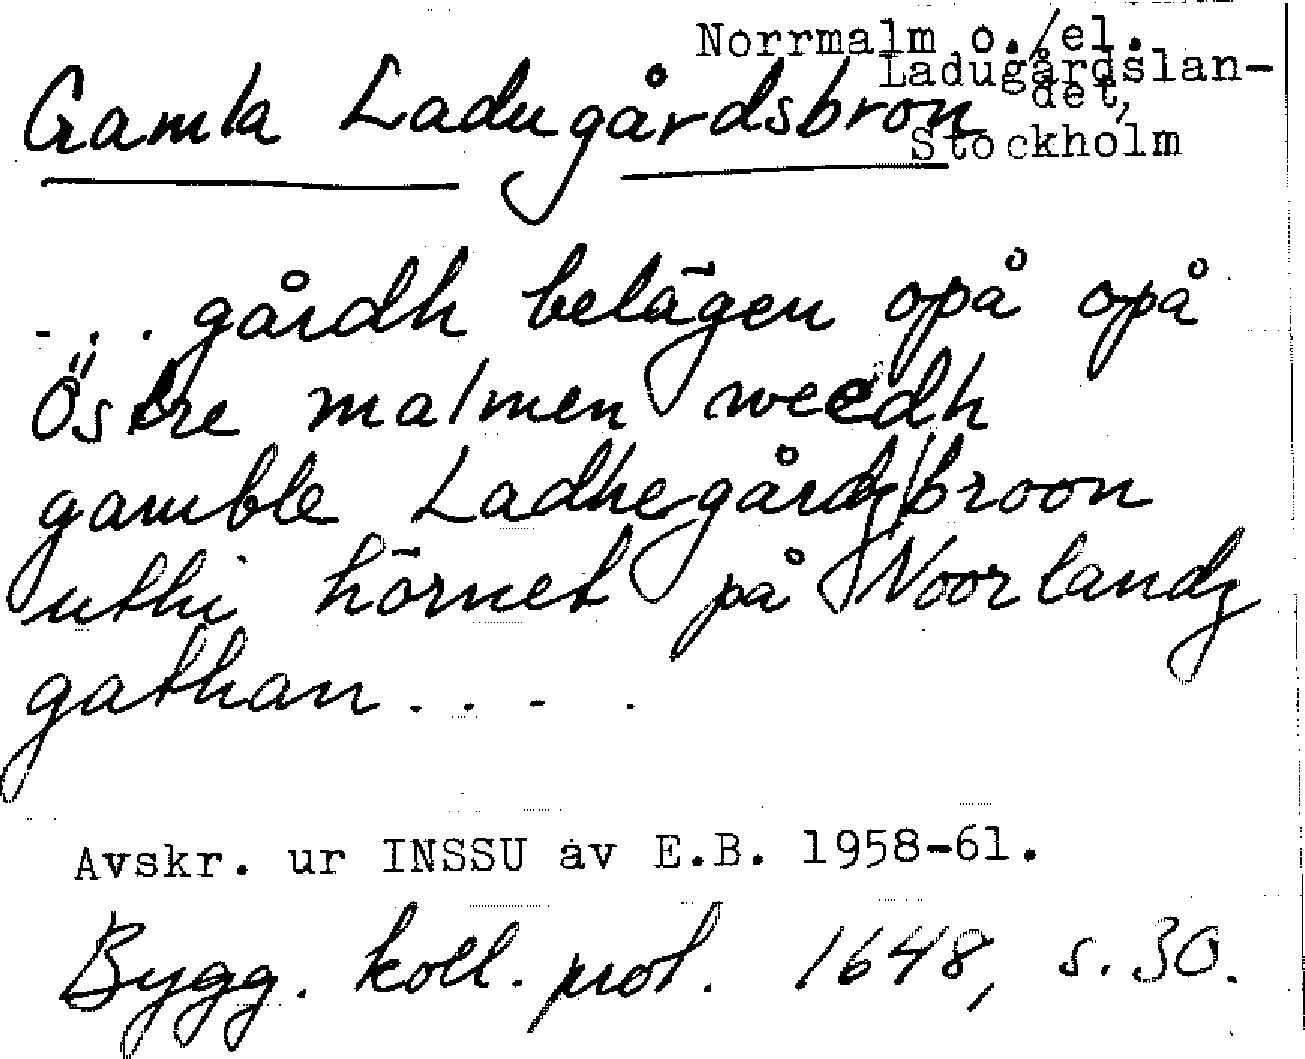 Norrmalm o./el.
Ladugårdslan-
det,
Stockholm
Gamla Ladugårdsbron
... gårdh belägen opå opå
Östre malmen weedh
gamble Ladhegårdz broon
uthi hörnet på Noorlandz
gathan . . . .
Avskr. ur INSSU av E.B. 1958-61.
Bygg. koll. prot. 1648, s. 30.